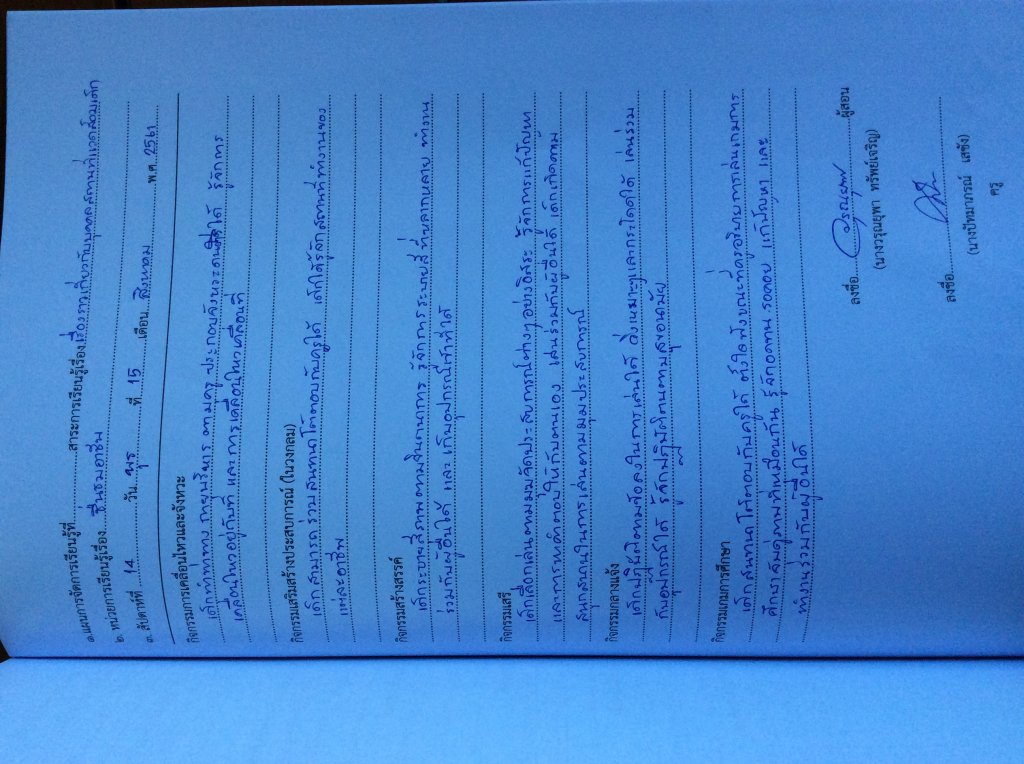 ๑.แผนการจัดการเรียนรู้ที่ สาระการเรียนรู้เรื่อง เรื่องราวเกี่ยวกับบุคคลสถานที่แวดล้อมเด็ก
๒. หน่วยการเรียนรู้เรื่อง ชื่นชมอาชีพ
๓. สัปดาห์ที่ 14 วัน พุธ ที่ 15 เดือน สิงหาคม พ.ศ. 2561
กิจกรรมการเคลื่อนไหวและจังหวะ
เด็กทำท่าทาง กายบริหาร ตามครู ประกอบจังหวะดนตรีได้ รู้จักการ
เคลื่อนไหวอยู่กับที่ และการเคลื่อนไหวเคลื่อนที่
กิจกรรมเสริมสร้างประสบการณ์ (ในวงกลม)
เด็กสามารถ ร่วมสนทนาโต้ตอบกับครูได้ เด็กได้รู้จักสถานที่ทำงานของ
แต่ละอาชีพ
กิจกรรมสร้างสรรค์
เด็กระบายสีภาพตามจินตนาการ รู้จักการระบายสีที่หลากหลาย ทำงาน
ร่วมกับผู้อื่นได้ และเก็บอุปกรณ์เข้าที่ได้
กิจกรรมเสรี
เด็กเลือกเล่นตามมุมจัดประสบการณ์ต่างๆ อย่างอิสระ รู้จักการแก้ปัญหา
และการหาคำตอบให้กับตนเอง เล่นร่วมกับผู้อื่นได้ เด็กเกิดความ
สนุกสนานในการเล่นตามมุมประสบการณ์
กิจกรรมกลางแจ้ง
เด็กปฏิบัติตามข้อตกลงในการเล่นได้ วิ่งเหยาะๆและกระโดดได้ เล่นร่วม
กับผู้อื่นได้ รู้จักปฏิบัติตนตามสุขอนามัย
กิจกรรมเกมการศึกษา
เด็กสนทนาโต้ตอบกับครูได้ ตั้งใจฟังขณะที่ครูอธิบายการเล่นเกมการ
ศึกษาจับคู่ภาพที่เหมือนกัน รู้จักอดทน รอคอย แก้ปัญหา และ
ทำงานร่วมกับผู้อื่นได้
ลงชื่อ วรุณยุพา ผู้สอน
(นางวรุณยุพา ทรัพย์เจริญ)
ลงชื่อ
(นางปัทมาภรณ์ เสซัง)
ครู